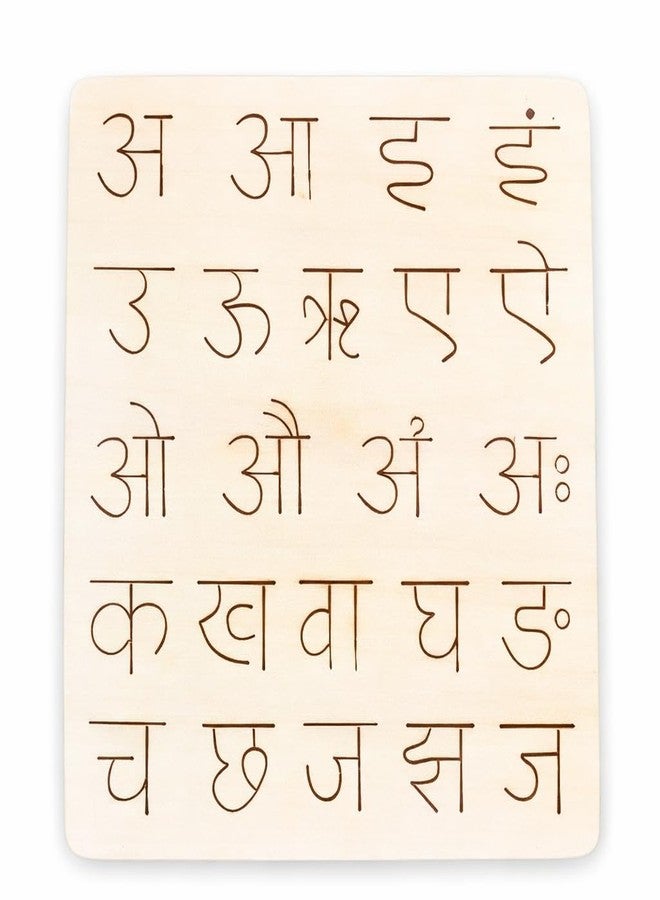 अ आ इ इं
उ ऊ ऋ ए ऐ
ओ औ अं अः
क ख वा घ ङ
च छ ज झ ज